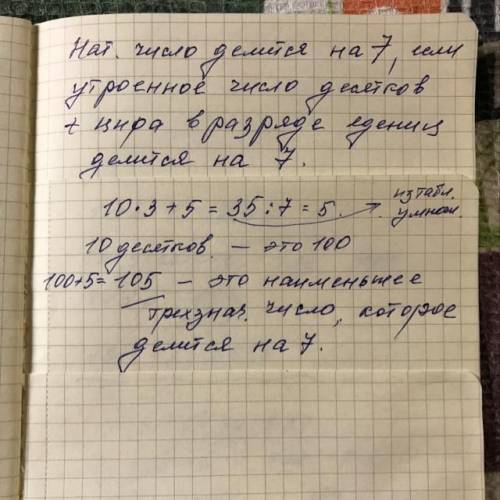 Нат. число делится на 7, если
утроенное число десятков
+ цифра в разряде едениц
делится на 7.
10·3+5=35:7=5. из табл.
умнож.
10 десятков – это 100
100+5=105 – это наименьшее
трехзнач. число, которое
делится на 7.